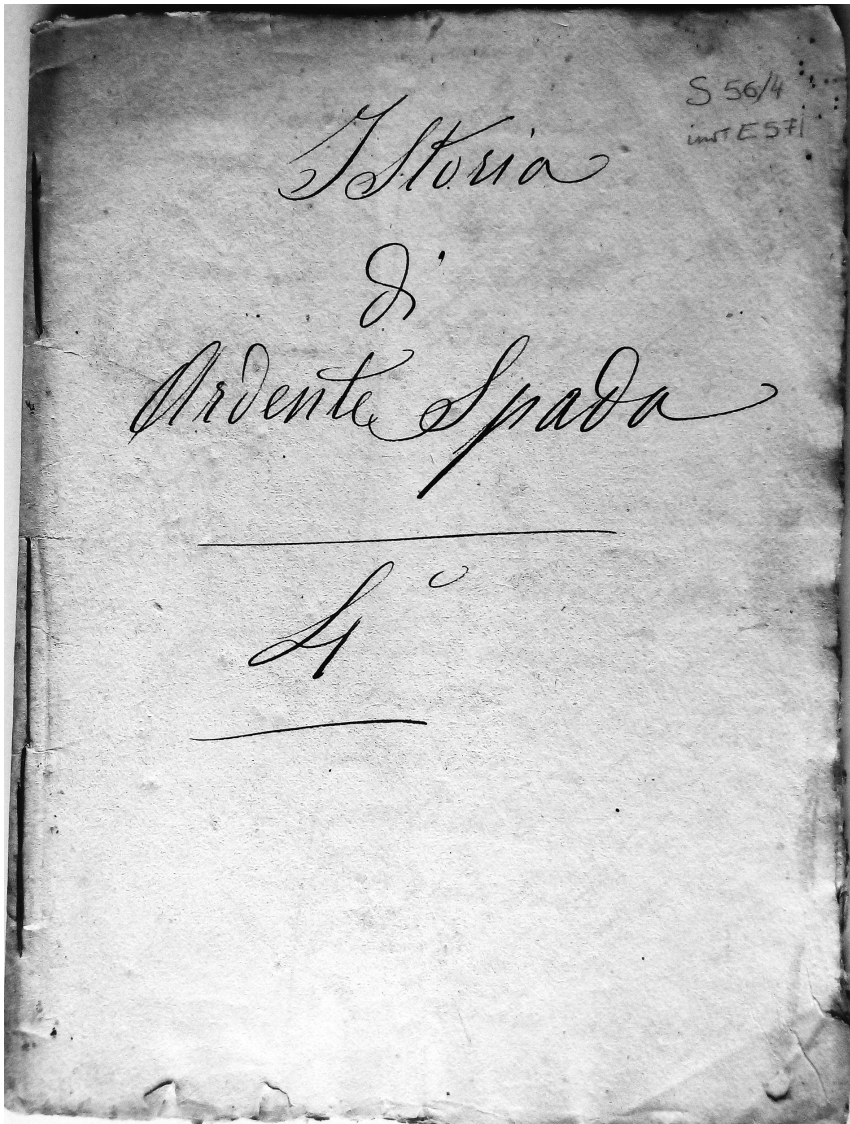 S 56/4
inv. E 571
IStoria
di
Ardente Spada
4º